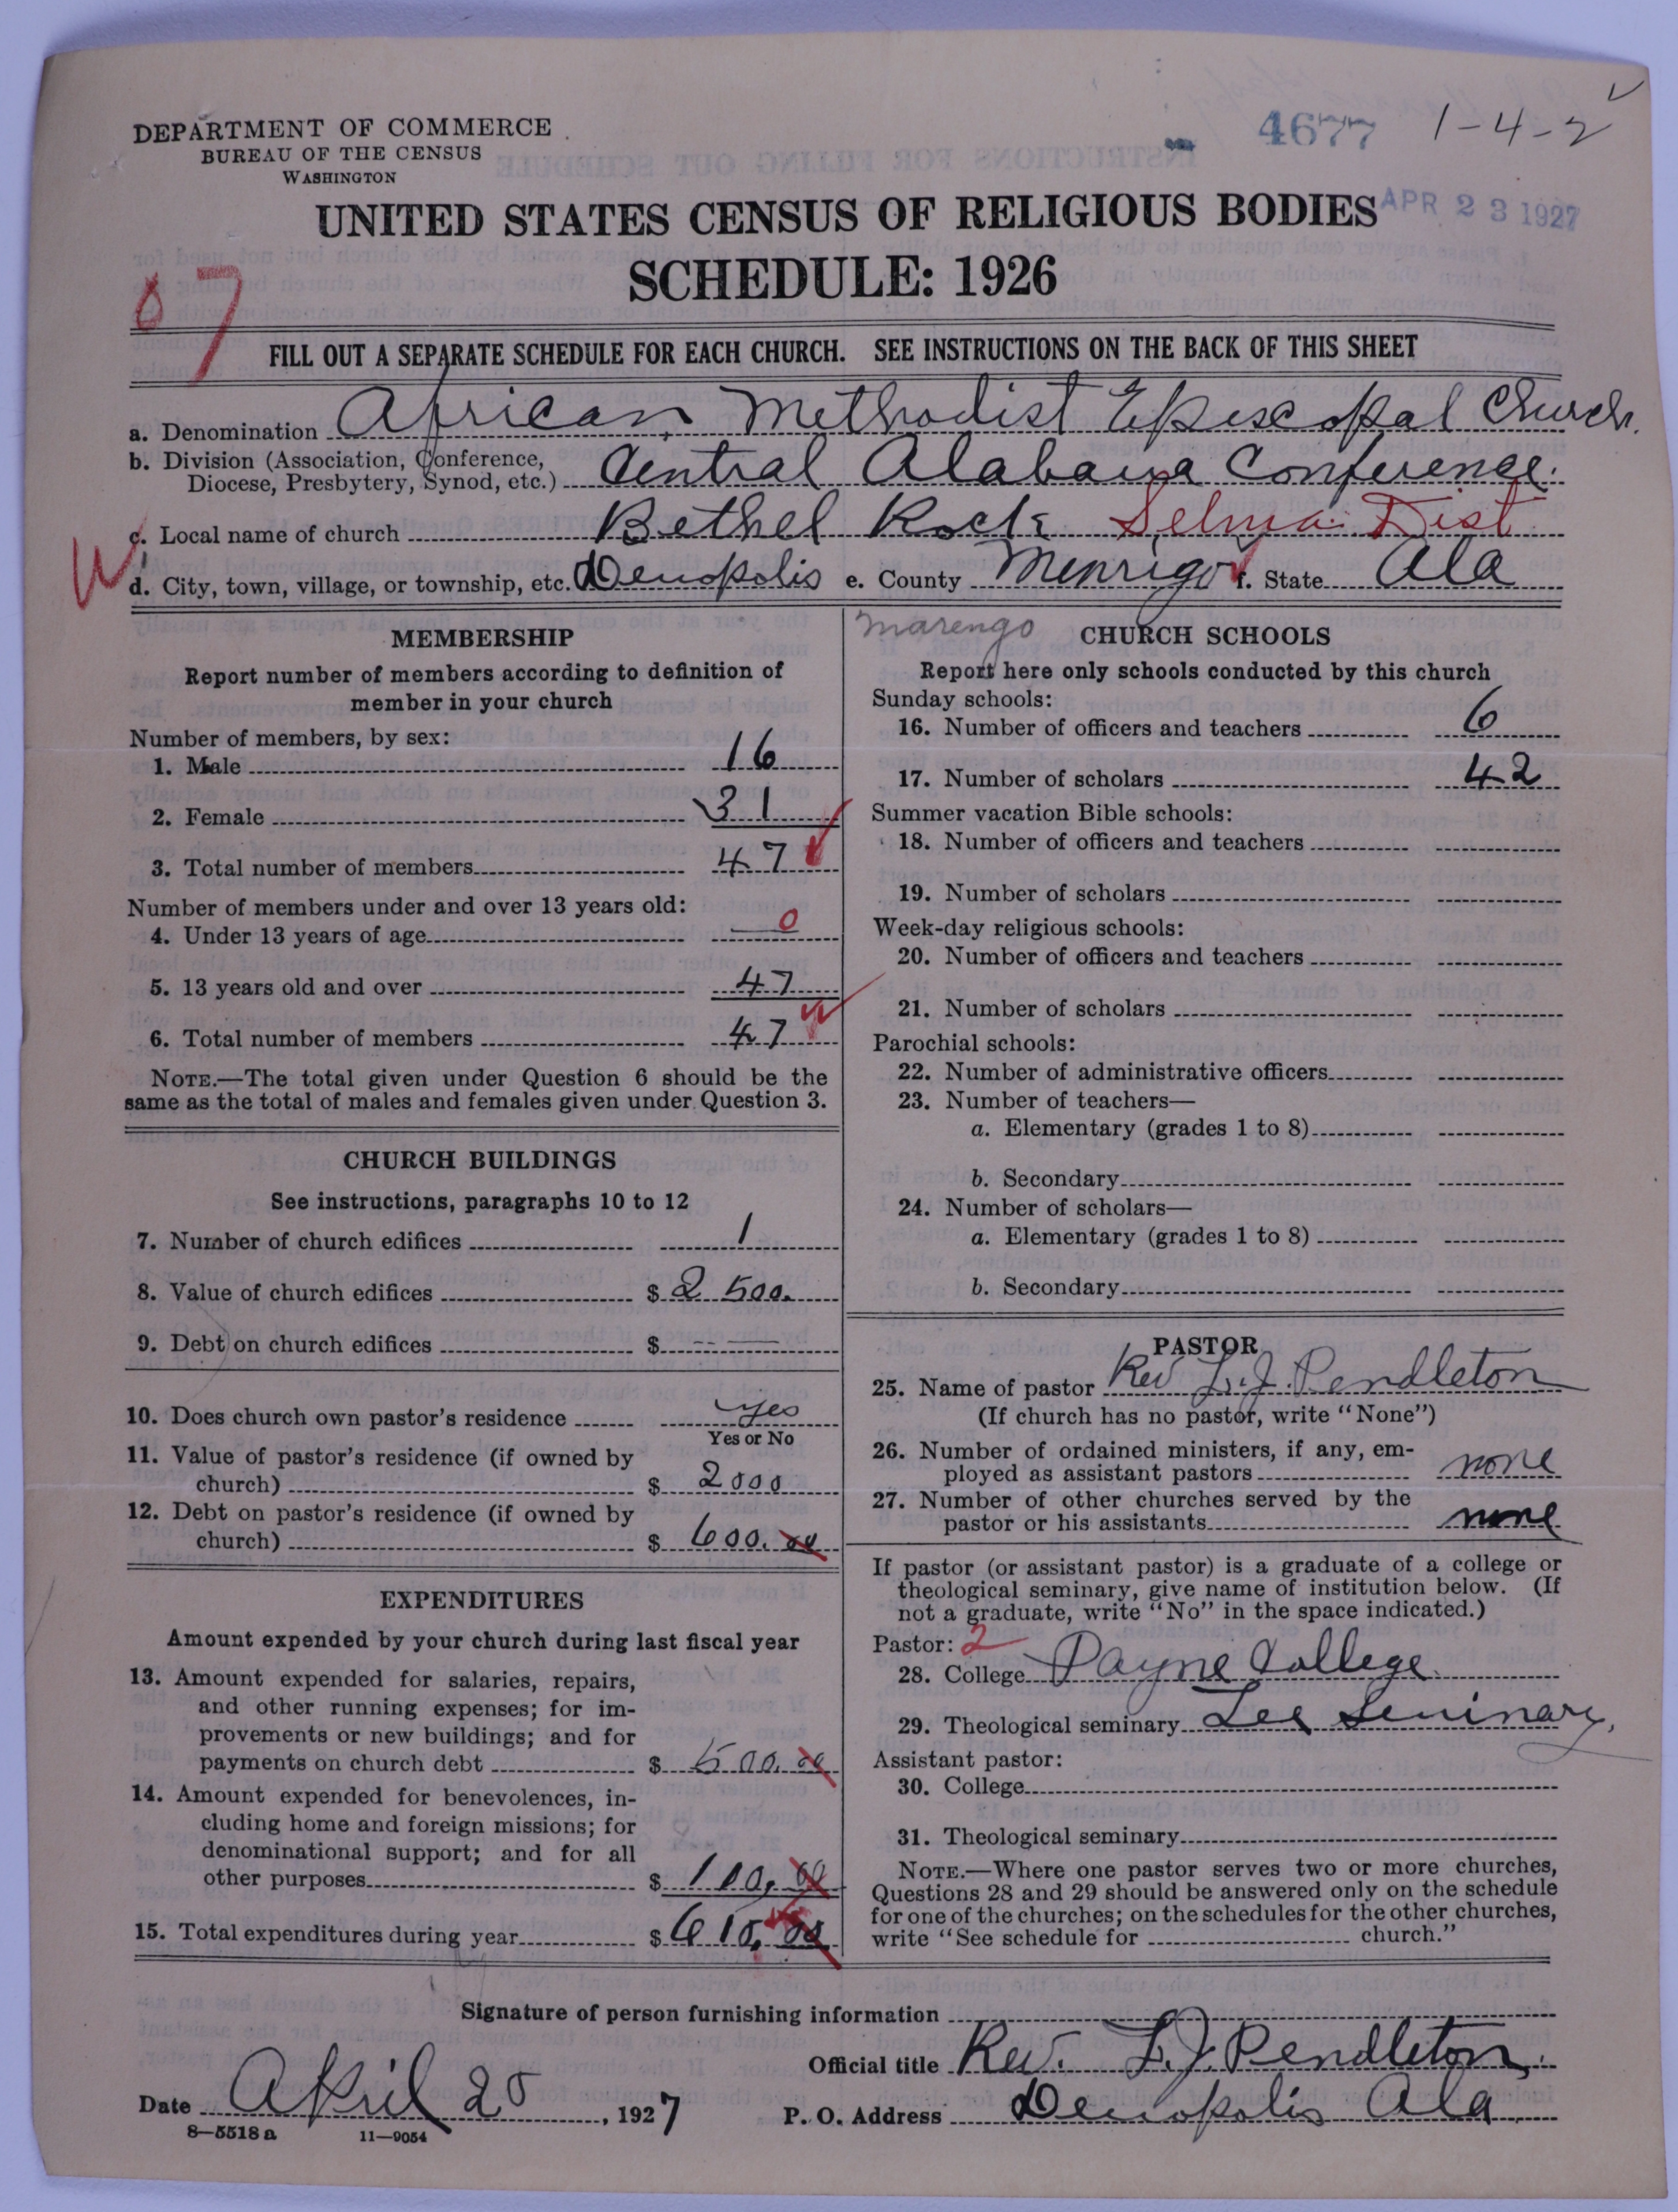 4677 1-4-2
DEPARTMENT OF COMMERCE
BUREAU OF THE CENSUS
WASHINGTON
UNITED STATES CENSUS OF RELIGIOUS BODIES
APR 23 1927
SCHEDULE: 1926
07
FILL OUT A SEPARATE SCHEDULE FOR EACH CHURCH. SEE INSTRUCTIONS ON THE BACK OF THIS SHEET
a. Denomination African Methodist Episcopal Church.
b. Division (Association, Conference,
Diocese, Presbytery, Synod, etc.) Central Alabama Conference.
c. Local name of church Bethel Rock Selma Dist
d. City, town, village, or township, etc. Demopolis e. County Menrigo f. State Ala
MEMBERSHIP
Report number of members according to definition of
member in your church
Number of members, by sex:
1. Male 16
2. Female 31
3. Total number of members 47
Number of members under and over 13 years old:
4. Under 13 years of age 0
5. 13 years old and over 47
6. Total number of members 47
NOTE.—The total given under Question 6 should be the
same as the total of males and females given under Question 3.
CHURCH BUILDINGS
See instructions, paragraphs 10 to 12
7. Number of church edifices 1
8. Value of church edifices $ 2500.
9. Debt on church edifices $ -- ——
10. Does church own pastor's residence yes
Yes or No
11. Value of pastor's residence (if owned by
church) $ 2000
12. Debt on pastor's residence (if owned by
church) $ 600.00
EXPENDITURES
Amount expended by your church during last fiscal year
13. Amount expended for salaries, repairs,
and other running expenses; for im-
provements or new buildings; and for
payments on church debt $ 500.00
14. Amount expended for benevolences, in-
cluding home and foreign missions; for
denominational support; and for all
other purposes $ 110.00
15. Total expenditures during year $ 610.00
marengo
CHURCH SCHOOLS
Report here only schools conducted by this church
Sunday schools:
16. Number of officers and teachers 6
17. Number of scholars 42
Summer vacation Bible schools:
18. Number of officers and teachers
19. Number of scholars
Week-day religious schools:
20. Number of officers and teachers
21. Number of scholars
Parochial schools:
22. Number of administrative officers
23. Number of teachers—
a. Elementary (grades 1 to 8)
b. Secondary
24. Number of scholars—
a. Elementary (grades 1 to 8)
b. Secondary
PASTOR
25. Name of pastor Rev L. J. Pendleton
(If church has no pastor, write "None")
26. Number of ordained ministers, if any, em-
ployed as assistant pastors none
27. Number of other churches served by the
pastor or his assistants none
If pastor (or assistant pastor) is a graduate of a college or
theological seminary, give name of institution below. (If
not a graduate, write "No" in the space indicated.)
Pastor: 2
28. College Payne College
29. Theological seminary Lee Seminary,
Assistant pastor:
30. College
31. Theological seminary
NOTE.—Where one pastor serves two or more churches,
Questions 28 and 29 should be answered only on the schedule
for one of the churches; on the schedules for the other churches,
write "See schedule for church."
Signature of person furnishing information
Official title Rev. L. J. Pendleton.
Date April 20, 1927 P. O. Address Demopolis Ala.
8—5518a 11—9054